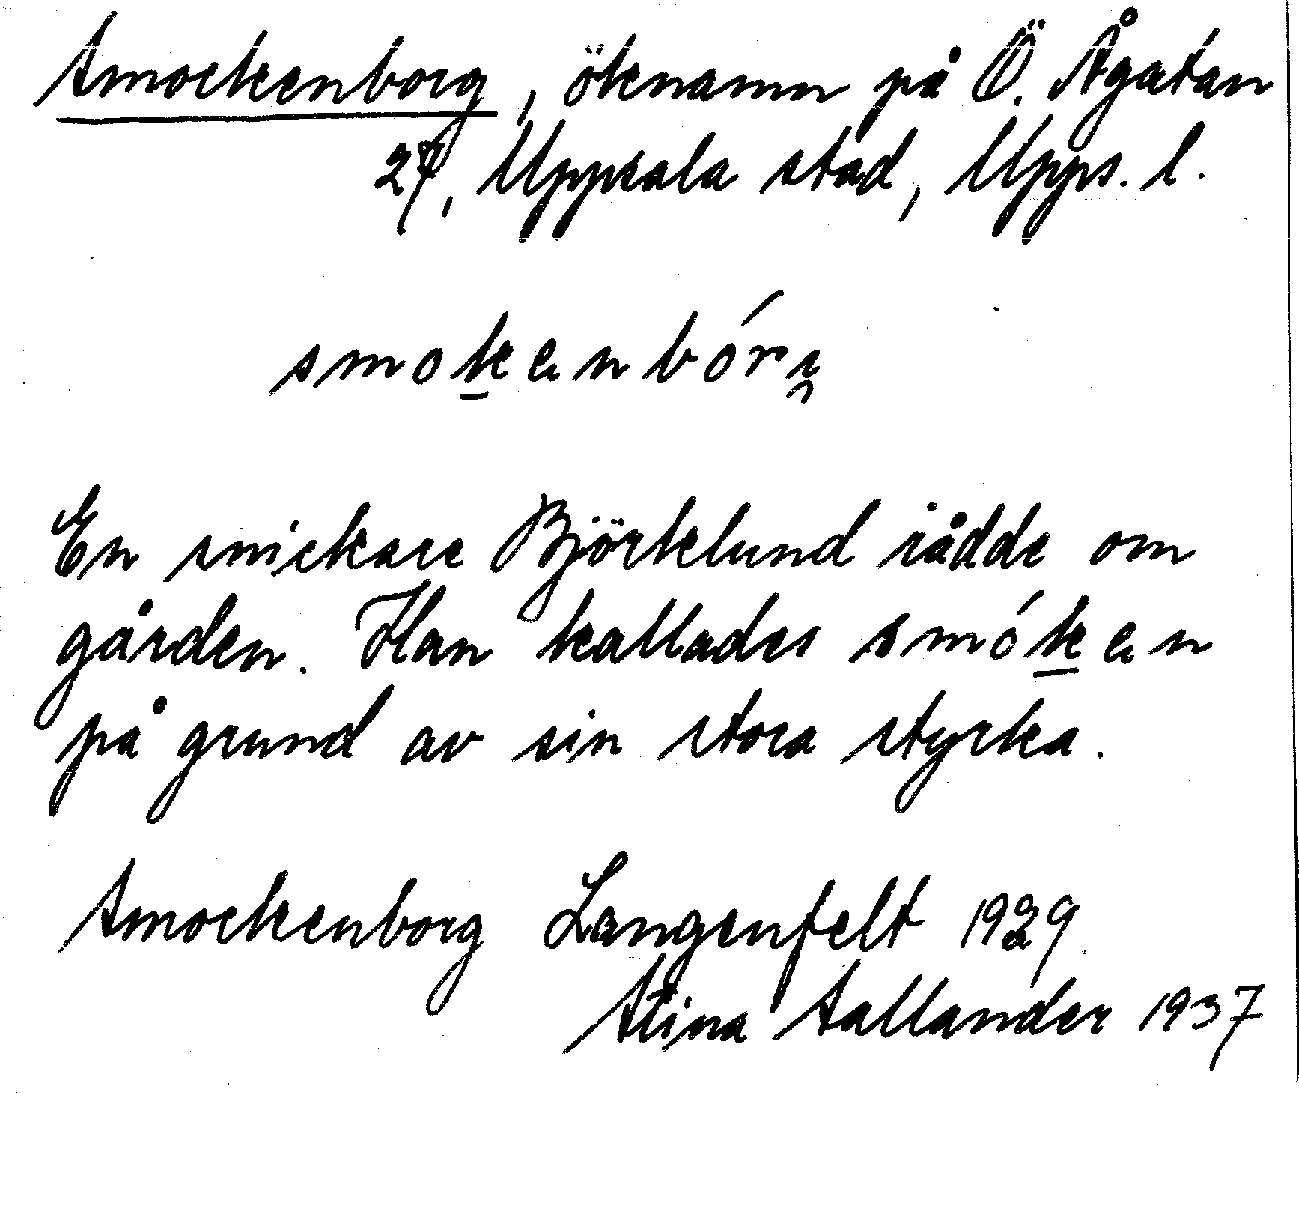 Smockenborg, öknamn på Ö. Ågatan
27, Uppsala stad, Upps. l.
smokenbórj
En snickare Björklund rådde om
gården. Han kallades smóken
på grund av sin stora styrka.
Smockenborg Langenfelt 1929
Stina Sallander 1937